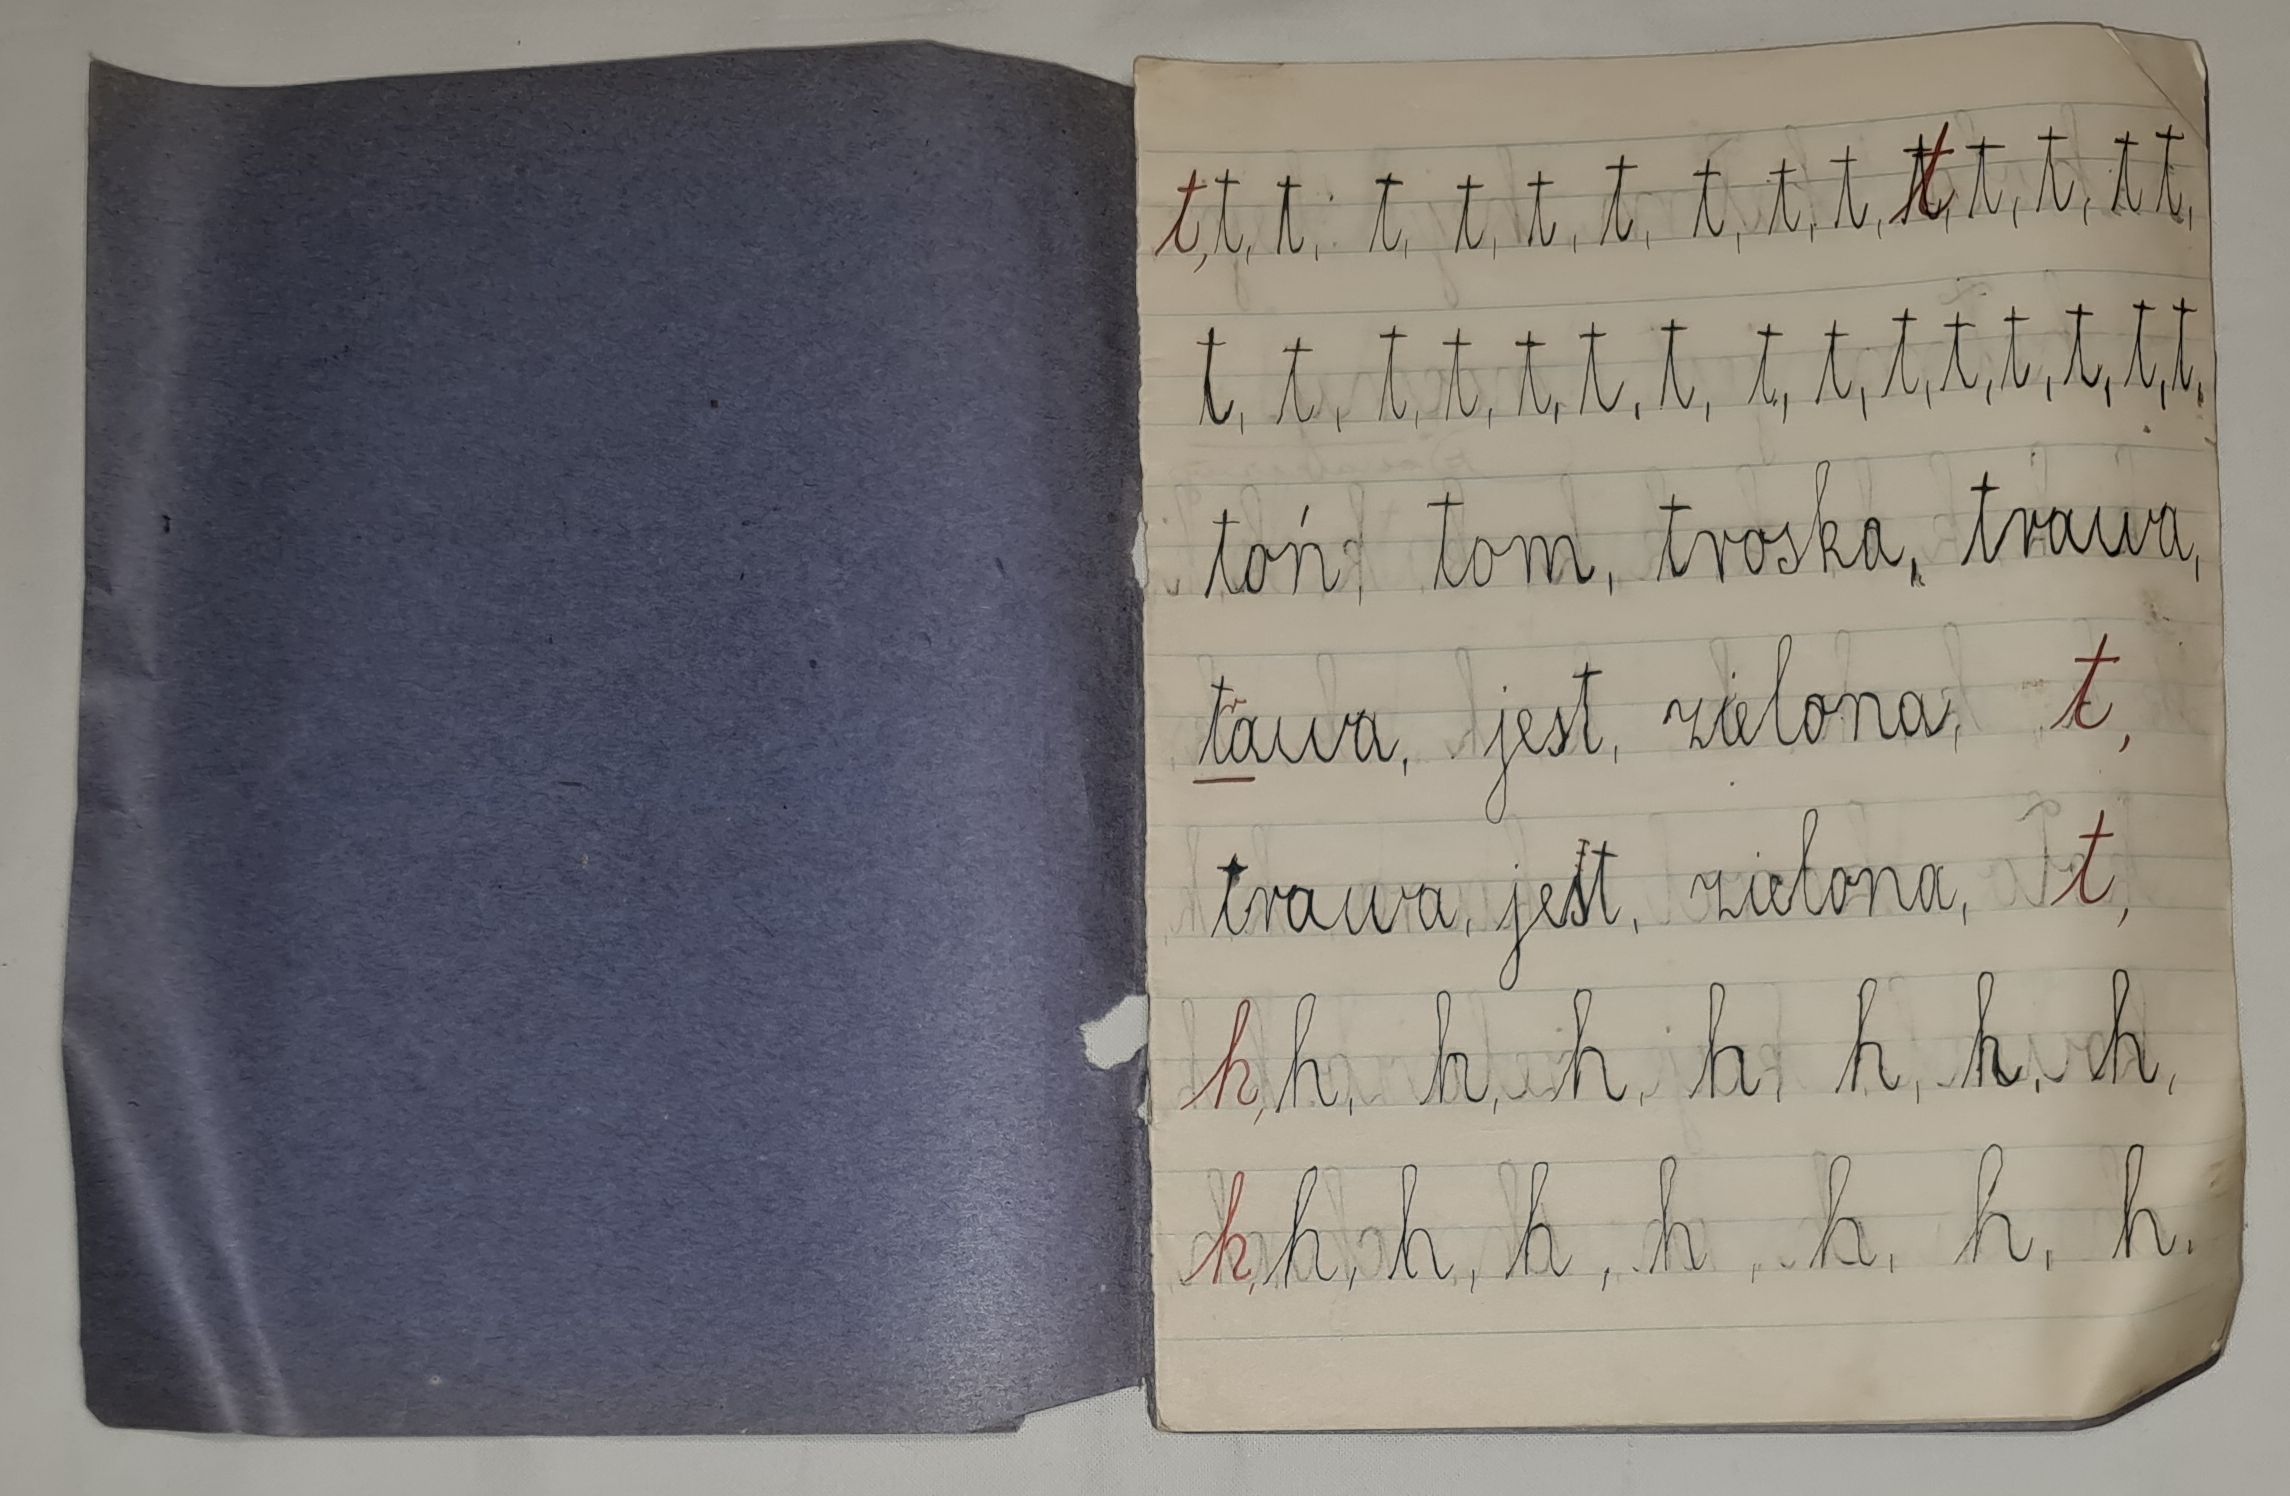 t, t, t, t, t, t, t, t, t, t, t, t, t, t t,
t, t, t, t, t, t, t, t, t, t, t, t, t, t, t,
toń, tom, troska, trawa,
tawa, jest, zielona, t,
trawa, jest, zielona, t,
h, h, h, h, h, h, h, h,
h, h, h, h, h, h, h, h.